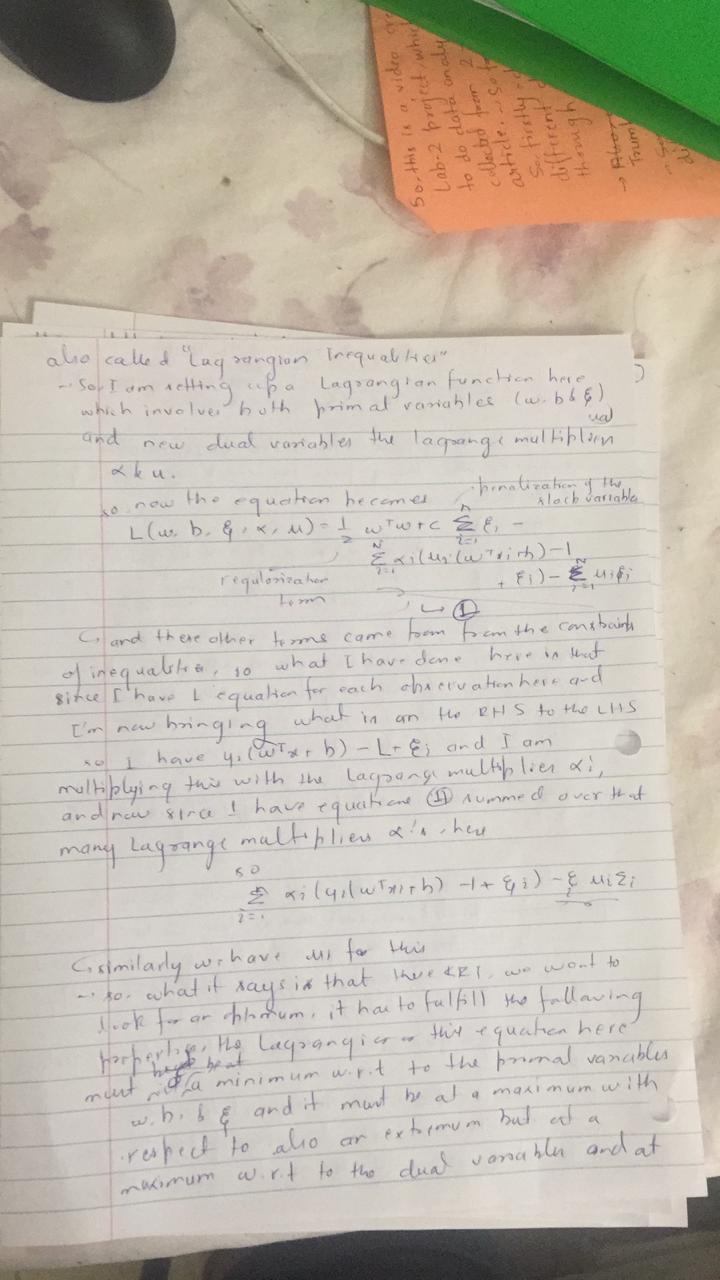 So, this is a video
Lab-2 project, which
to do data analy
collected from 2
article. - So
So, firstly
different
through
→ Abor
Trum
- So
di
also called "Lagrangian Inequalities"
- So, I am setting up a Lagrangian function here
which involves both primal variables (w, b & ξ)
and new dual variables the lagrange multiplier
ual
α & u.
so now the equation becomes
penalization of the
slack variable
L(w, b, ξ, α, u) = 1/2 wᵀw + c Σ ξi -
Σ αi(yi(wᵀxi+b)-1
+ ξi) - Σ uiξi
regularization
term
↳ ①
↳ and these other terms came from from the constraints
of inequalities, so what I have done here is that
since I have 1 equation for each observation here and
I'm now bringing what is on the RHS to the LHS
so I have yi(wᵀx+b) - 1 + ξi and I am
multiplying this with the lagrange multiplier αi,
and now since I have equations summed over that
many Lagrange multipliers α's, here
so
Σ i=1 αi(yi(wᵀxi+b) -1+ξi) - Σ i uiξi
↳ similarly we have ui for this
- so, what it says is that these KKT, we want to
look for an optimum, it has to fulfill the following
properties, the Lagrangian this equation here
must be at a minimum w.r.t to the primal variables
w, b, & ξ and it must be at a maximum with
respect to also an extremum but at a
maximum w.r.t to the dual variables and at